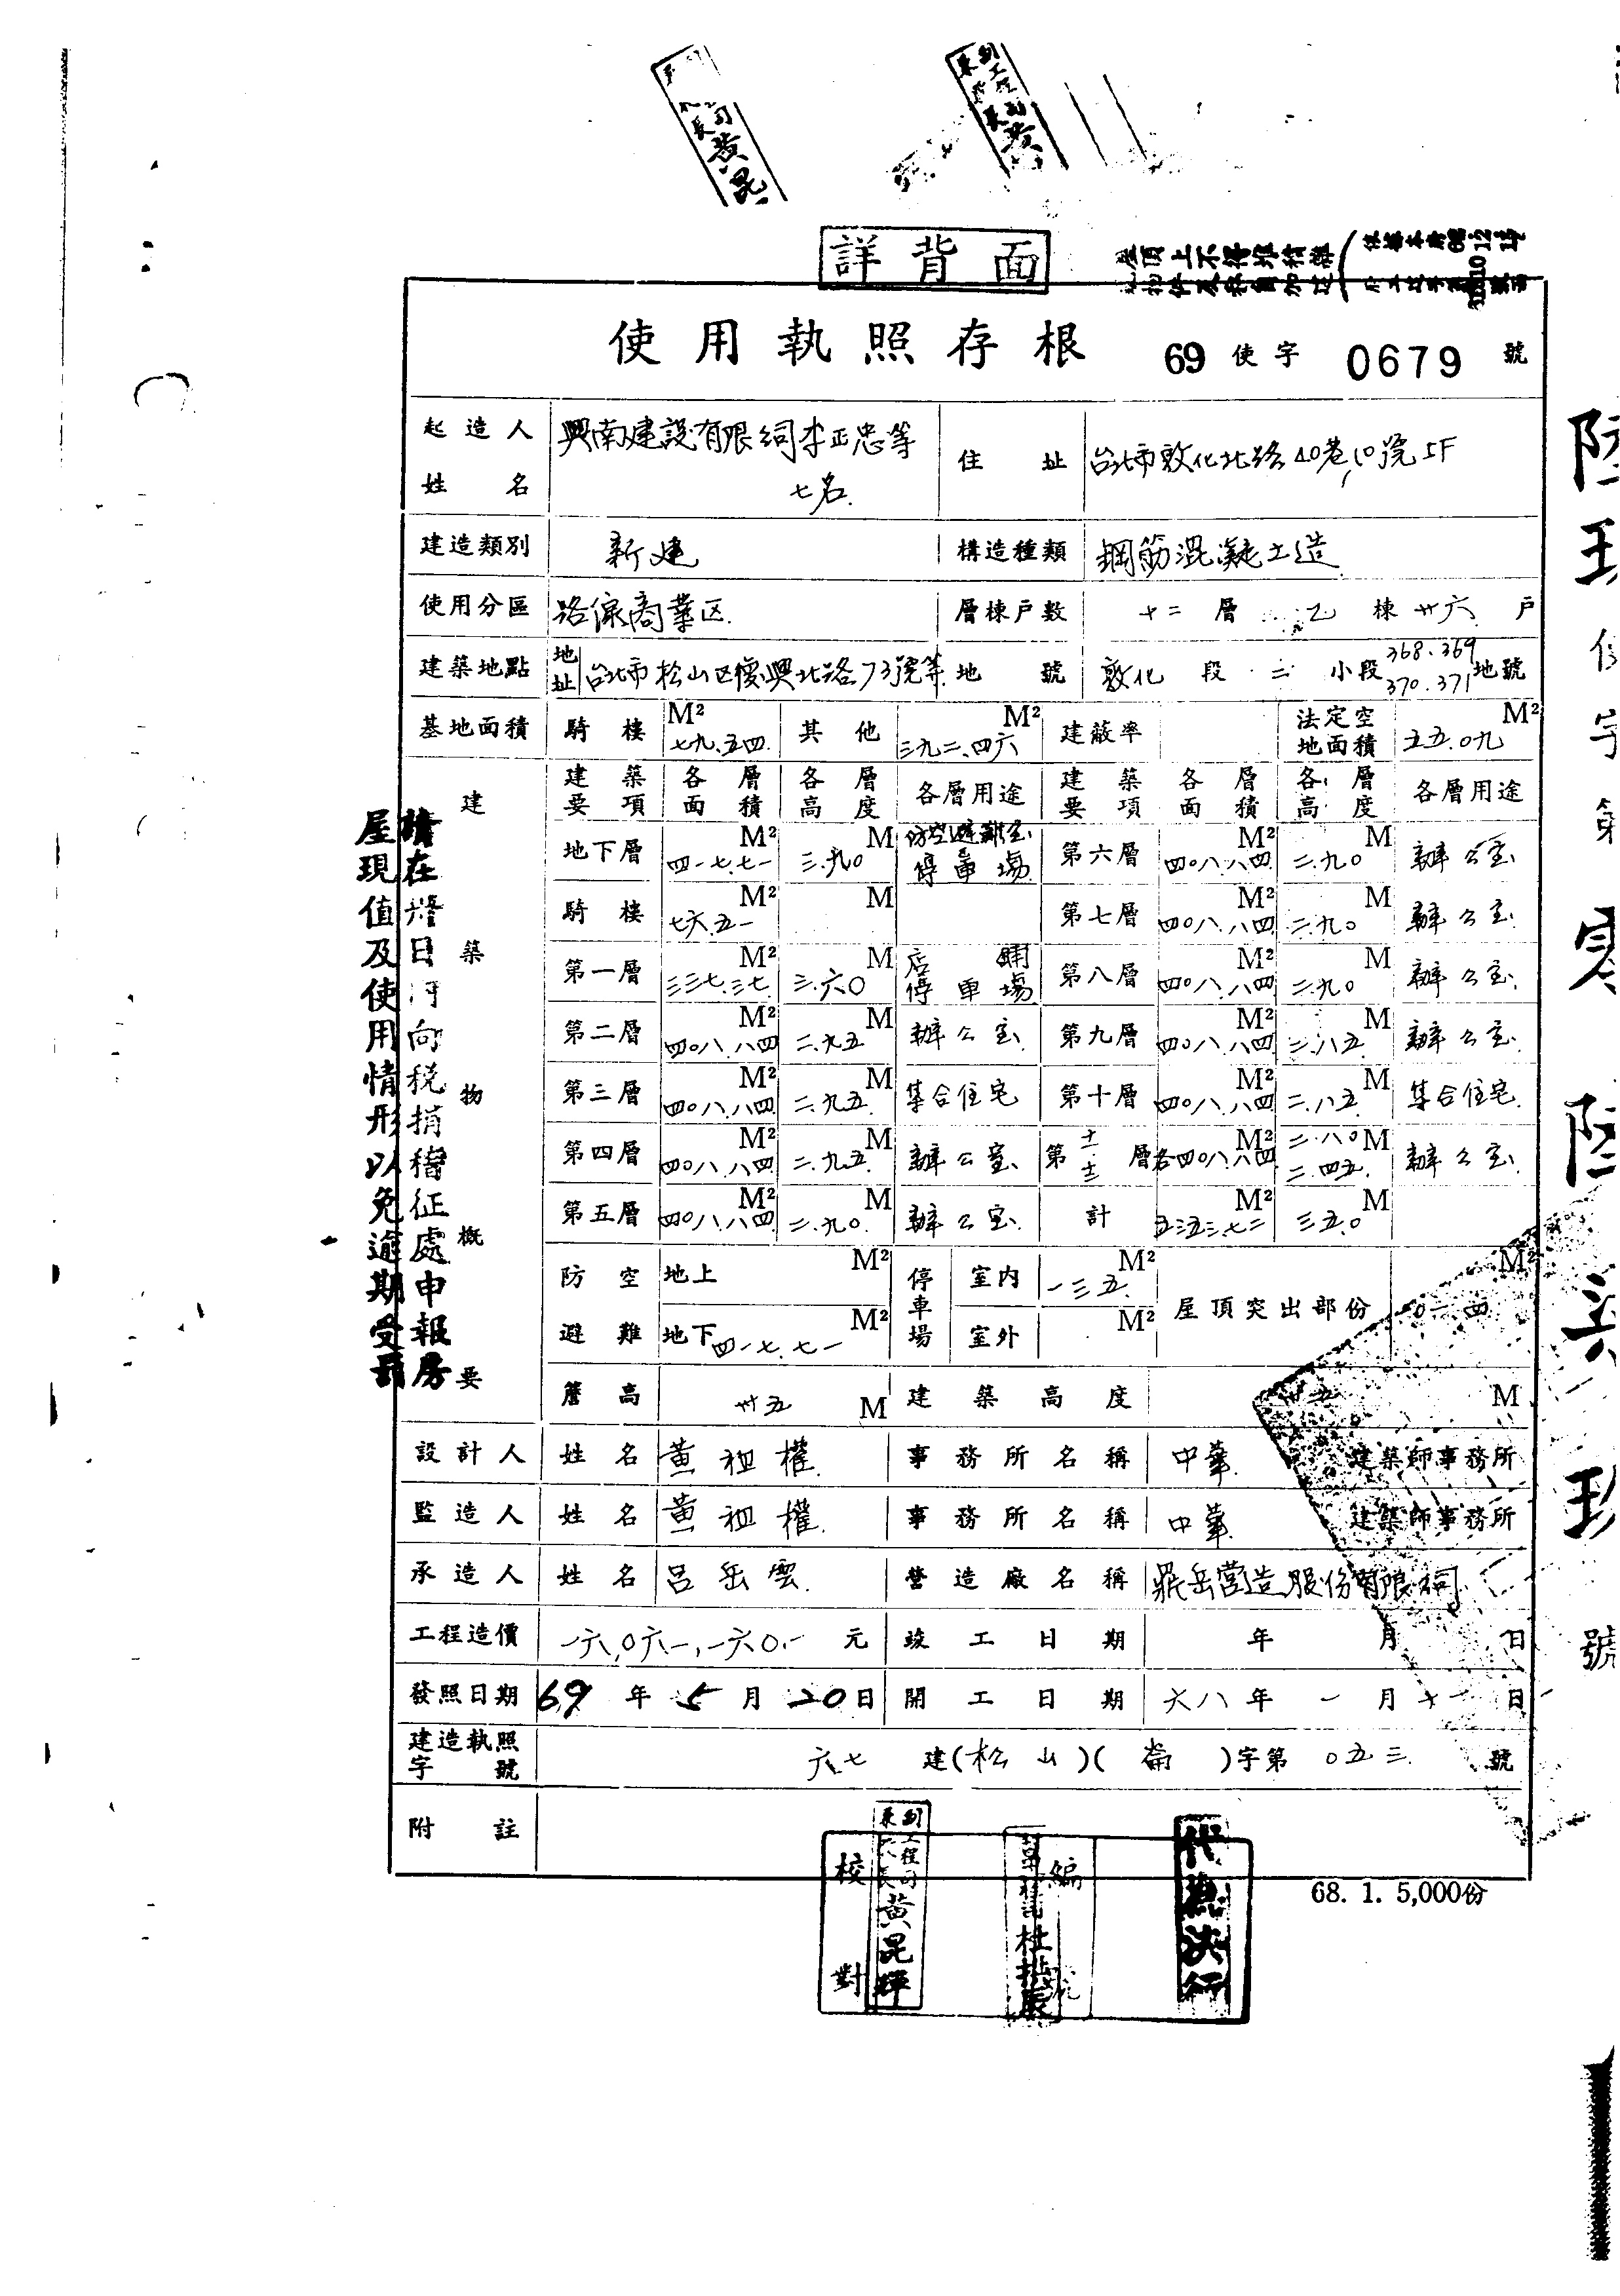 黃昆
黃
詳背面
屋頂上不得
使用執照存根 69 使字 0679 號
起造人姓名 興南建設有限公司李正忠等七名 住址 台北市敦化北路40巷10號5F
建造類別 新建 構造種類 鋼筋混凝土造
使用分區 路線商業区 層棟戶數 十二層 乙棟 廿六戶
建築地點 地址 台北市松山区復興北路73號等 地號 敦化段二小段 368.369 370.371 地號
基地面積 騎樓 七九.五四 M² 其他 三九二.四六 M² 建蔽率 法定空地面積 五五.〇九 M²
建築物概要
建築要項 各層面積 各層高度 各層用途 建築要項 各層面積 各層高度 各層用途
地下層 四一七.七一 M² 三.九〇 M 防空避難室停車場 第六層 四〇八.八四 M² 二.九〇 M 辦公室
騎樓 七六.五一 M² M 第七層 四〇八.八四 M² 二.九〇 M 辦公室
第一層 三三七.三七 M² 三.六〇 M 店鋪停車場 第八層 四〇八.八四 M² 二.九〇 M 辦公室
第二層 四〇八.八四 M² 二.九五 M 辦公室 第九層 四〇八.八四 M² 二.八五 M 辦公室
第三層 四〇八.八四 M² 二.九五 M 集合住宅 第十層 四〇八.八四 M² 二.八五 M 集合住宅
第四層 四〇八.八四 M² 二.九五 M 辦公室 第十一.十二層 各四〇八.八四 M² 二.八〇 二.四五 M 辦公室
第五層 四〇八.八四 M² 二.九〇 M 辦公室 計 M² 三五.〇 M
防空避難 地上 M² 停車場 室內 一三五. M² 屋頂突出部份 M²
地下 四一七.七一 M² 室外 M²
簷高 卅五 M 建築高度 M
設計人 姓名 黃祖權 事務所名稱 中華 建築師事務所
監造人 姓名 黃祖權 事務所名稱 中華 建築師事務所
承造人 姓名 呂岳雲 營造廠名稱 鼎岳營造股份有限公司
工程造價 一六,〇六一,一六〇.一 元 竣工日期 年 月 日
發照日期 69年5月20日 開工日期 六八年一月十一日
建造執照字號 六七 建(松山)(崙)字第 〇五三 號
附註
68. 1. 5,000份
校對
黃昆輝
編
代為決行
請在 日內向稅捐稽征處申報房
屋現值及使用情形以免逾期受罰
陸玖使字第零陸柒玖號